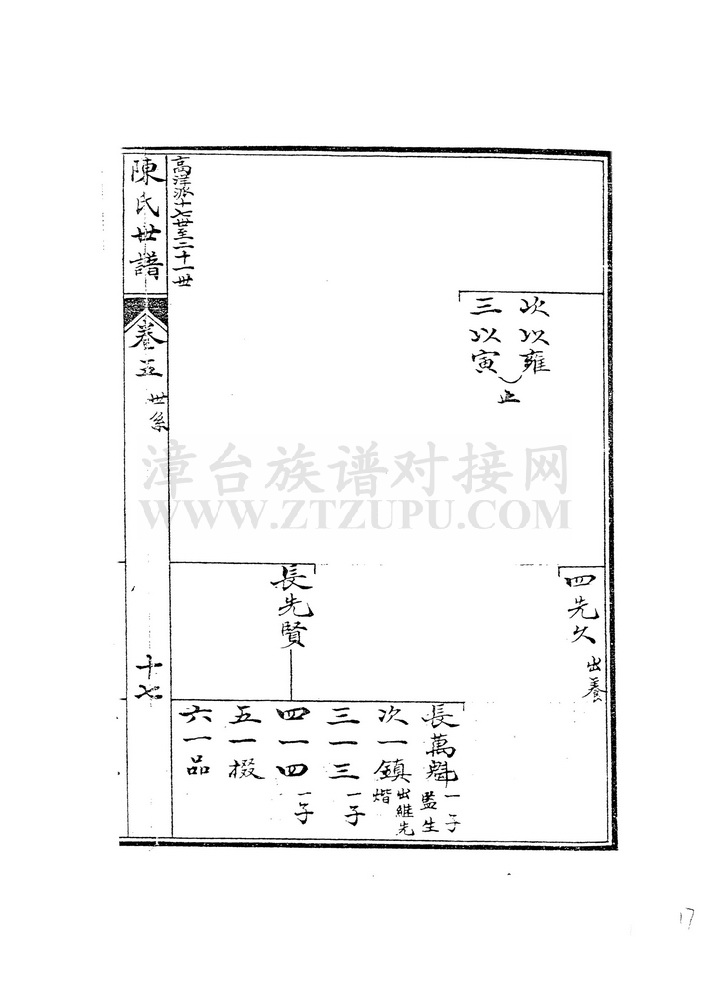 次以雍
三以寅
止
四先久 出養
長先賢
長萬魁 一子 監生
次一鎮 出継先
三一三 一子
四一四 一子
五一掇
六一品
高洋派十七世至二十一世
陳氏世譜
卷五
世系
十七
漳台族谱对接网
WWW.ZTZUPU.COM
17